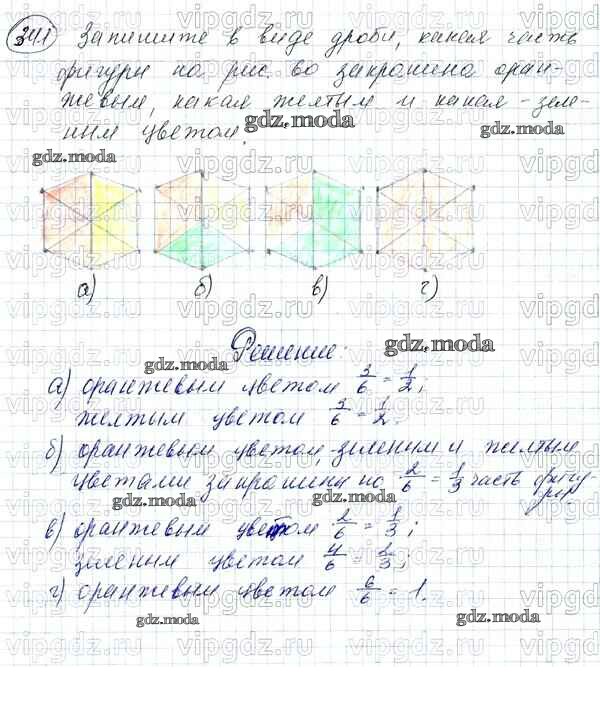 341 Запишите в виде дроби, какая часть
фигуры на рис 60 закрашена оран-
жевым, какая желтым и какая - зеле-
ным цветом.
а) б) в) г)
Решение:
а) оранжевым цветом 3/6 = 1/2;
желтым цветом 3/6 = 1/2.
б) оранжевым цветом, зеленим и желтым
цветами закрашена по 2/6 = 1/3 часть фигу-
ры
в) оранжевым цветом 2/6 = 1/3;
зеленым цветом 4/6 = 2/3;
г) оранжевым цветом 6/6 = 1.
gdz.moda
vipgdz.ru